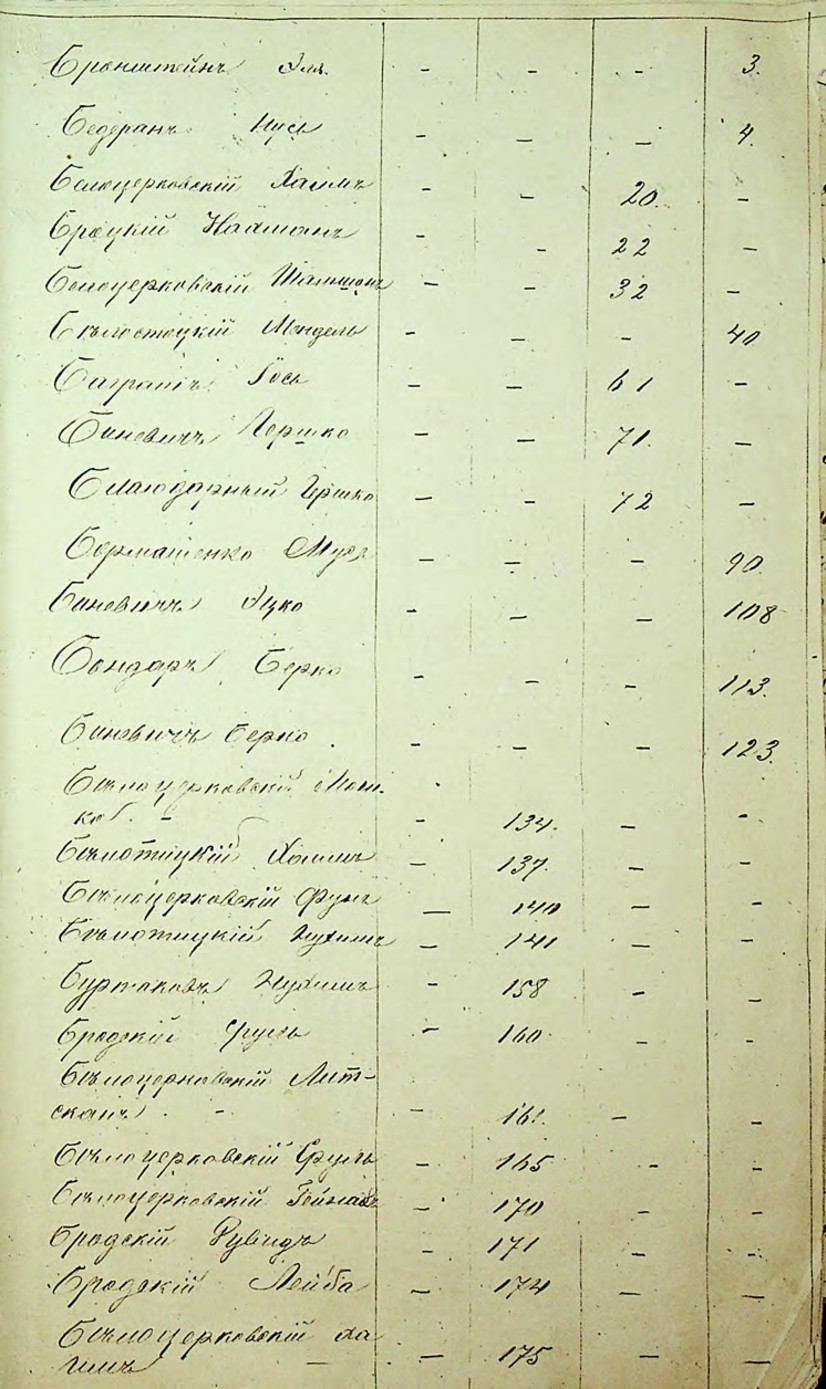 Бронштейнъ Эля. - - - 3.
Бедеранъ Нусь - - - 4.
Белоцерковскій Хаимъ - - 20. -
Брацкій Нахманъ - - 22 -
Белоцерковскій Шамшонъ - - 32 -
Бѣлостоцкій Мендель - - - 40
Багранъ Іось - - 61 -
Биневичъ Гершко - - 71. -
Благодарный Гершко - - 72 -
Бермашенко - - - 90.
Биневичъ Ицко - - - 108
Бондарь Берко - - - 113.
Биневичъ Берко - - - 123.
Бѣлоцерковскій Мош-
ко - - 134. - -
Хаимъ - 137. - -
Бѣлоцерковскій Сруль - 140 - -
Нухимъ - 141 - -
Бурлаковъ Нухимъ - 158 - -
Бродскій Сруль - 160. - -
Бѣлоцерковскій Лит-
сканъ - - 161. - -
Бѣлоцерковскій Сруль - 165 - -
Бѣлоцерковскій - 170 - -
Бродскій Рувидъ - 171 - -
Бродскій Лейба - 174 - -
Бѣлоцерковскій Ха
имъ - - 175 - -